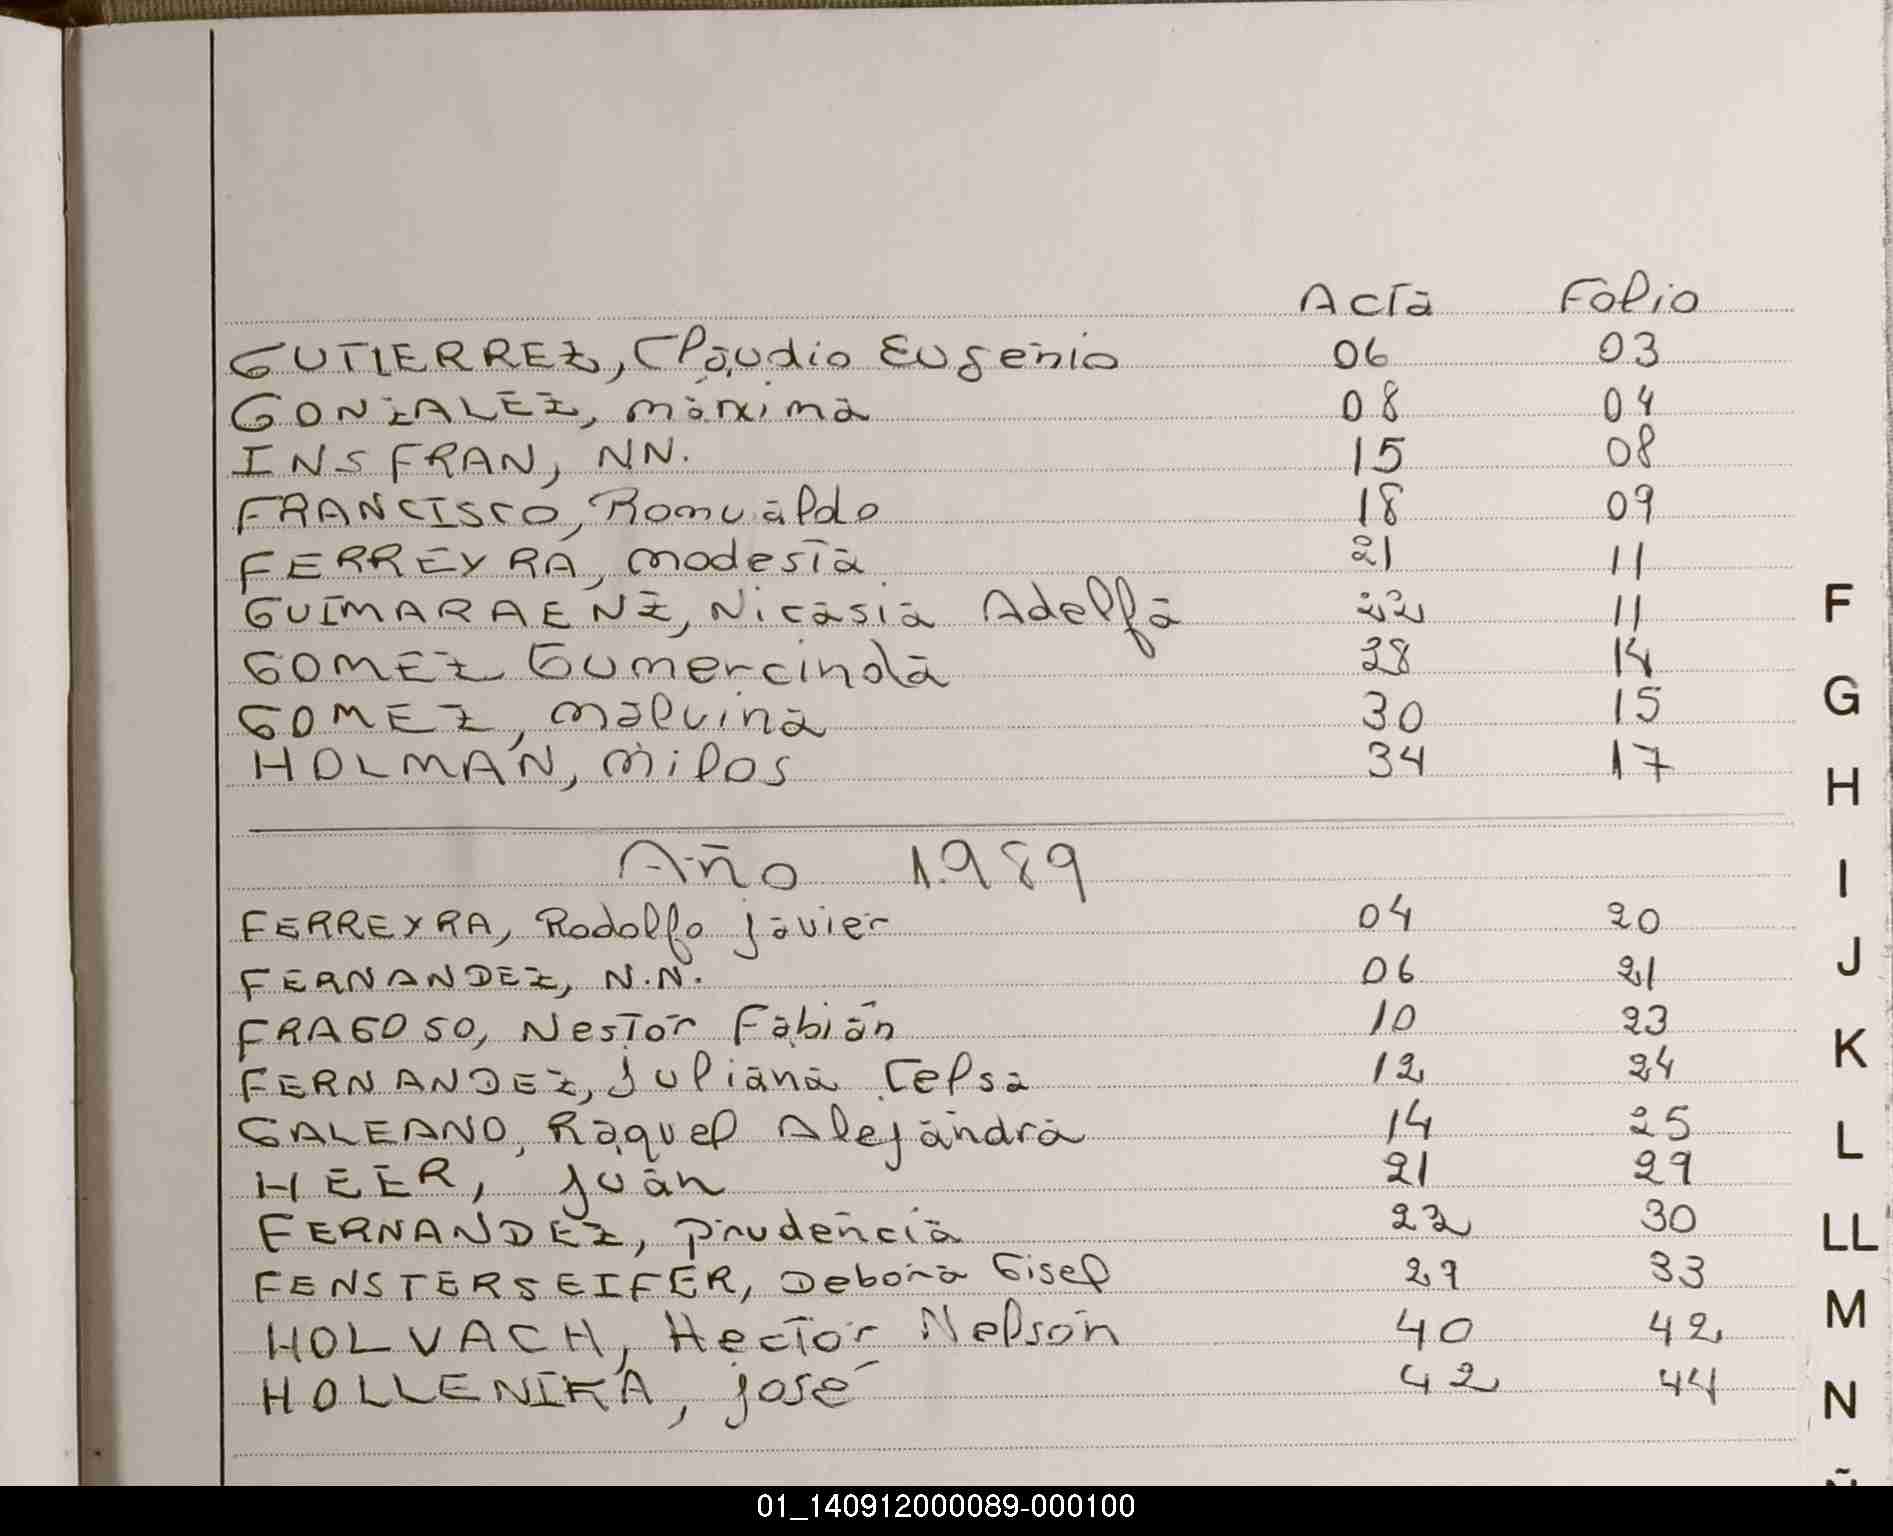 Acta Folio
GUTIERREZ, Claudio Eugenio 06 03
GONZALEZ, Máxima 08 04
INSFRAN, NN. 15 08
FRANCISCO, Romualdo 18 09
FERREYRA, Modesta 21 11
GUIMARAENZ, Nicasia Adelfa 22 11
GOMEZ Gumercinda 28 14
GOMEZ, Malvina 30 15
HOLMAN, Milos 34 17
Año 1.989
FERREYRA, Rodolfo Javier 04 20
FERNANDEZ, N.N. 06 21
FRAGOSO, Nestor Fabián 10 23
FERNANDEZ, Juliana Celsa 12 24
GALEANO, Raquel Alejandra 14 25
HEER, Juan 21 29
FERNANDEZ, Prudencia 22 30
FENSTERSEIFER, Debora Gisel 29 33
HOLVACH, Hector Nelson 40 42
HOLLENIKA, José 42 44
F
G
H
I
J
K
L
LL
M
N
Ñ
01_140912000089-000100